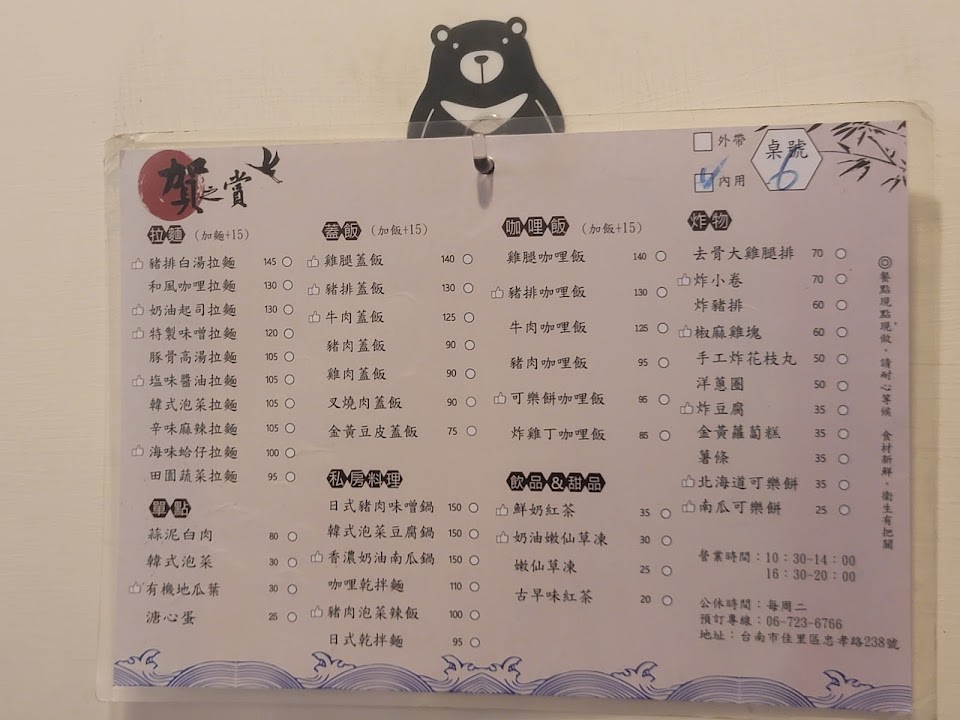 賀之賞
外帶
內用
桌號
6
拉麵 (加麵+15)
豬排白湯拉麵 145
和風咖哩拉麵 130
奶油起司拉麵 130
特製味噌拉麵 120
豚骨高湯拉麵 105
塩味醬油拉麵 105
韓式泡菜拉麵 105
辛味麻辣拉麵 105
海味蛤仔拉麵 100
田園蔬菜拉麵 95
單點
蒜泥白肉 80
韓式泡菜 30
有機地瓜葉 30
溏心蛋 25
蓋飯 (加飯+15)
雞腿蓋飯 140
豬排蓋飯 130
牛肉蓋飯 125
豬肉蓋飯 90
雞肉蓋飯 90
叉燒肉蓋飯 90
金黃豆皮蓋飯 75
私房料理
日式豬肉味噌鍋 150
韓式泡菜豆腐鍋 150
香濃奶油南瓜鍋 150
咖哩乾拌麵 110
豬肉泡菜辣飯 100
日式乾拌麵 95
咖哩飯 (加飯+15)
雞腿咖哩飯 140
豬排咖哩飯 130
牛肉咖哩飯 125
豬肉咖哩飯 95
可樂餅咖哩飯 95
炸雞丁咖哩飯 85
飲品&甜品
鮮奶紅茶 35
奶油嫩仙草凍 30
嫩仙草凍 25
古早味紅茶 20
炸物
去骨大雞腿排 70
炸小卷 70
炸豬排 60
椒麻雞塊 60
手工炸花枝丸 50
洋蔥圈 50
炸豆腐 35
金黃蘿蔔糕 35
薯條 35
北海道可樂餅 35
南瓜可樂餅 25
◎餐點現點現做，請耐心等候 食材新鮮，衛生有把關
營業時間：10：30-14：00
16：30-20：00
公休時間：每周二
預訂專線：06-723-6766
地址：台南市佳里區忠孝路238號